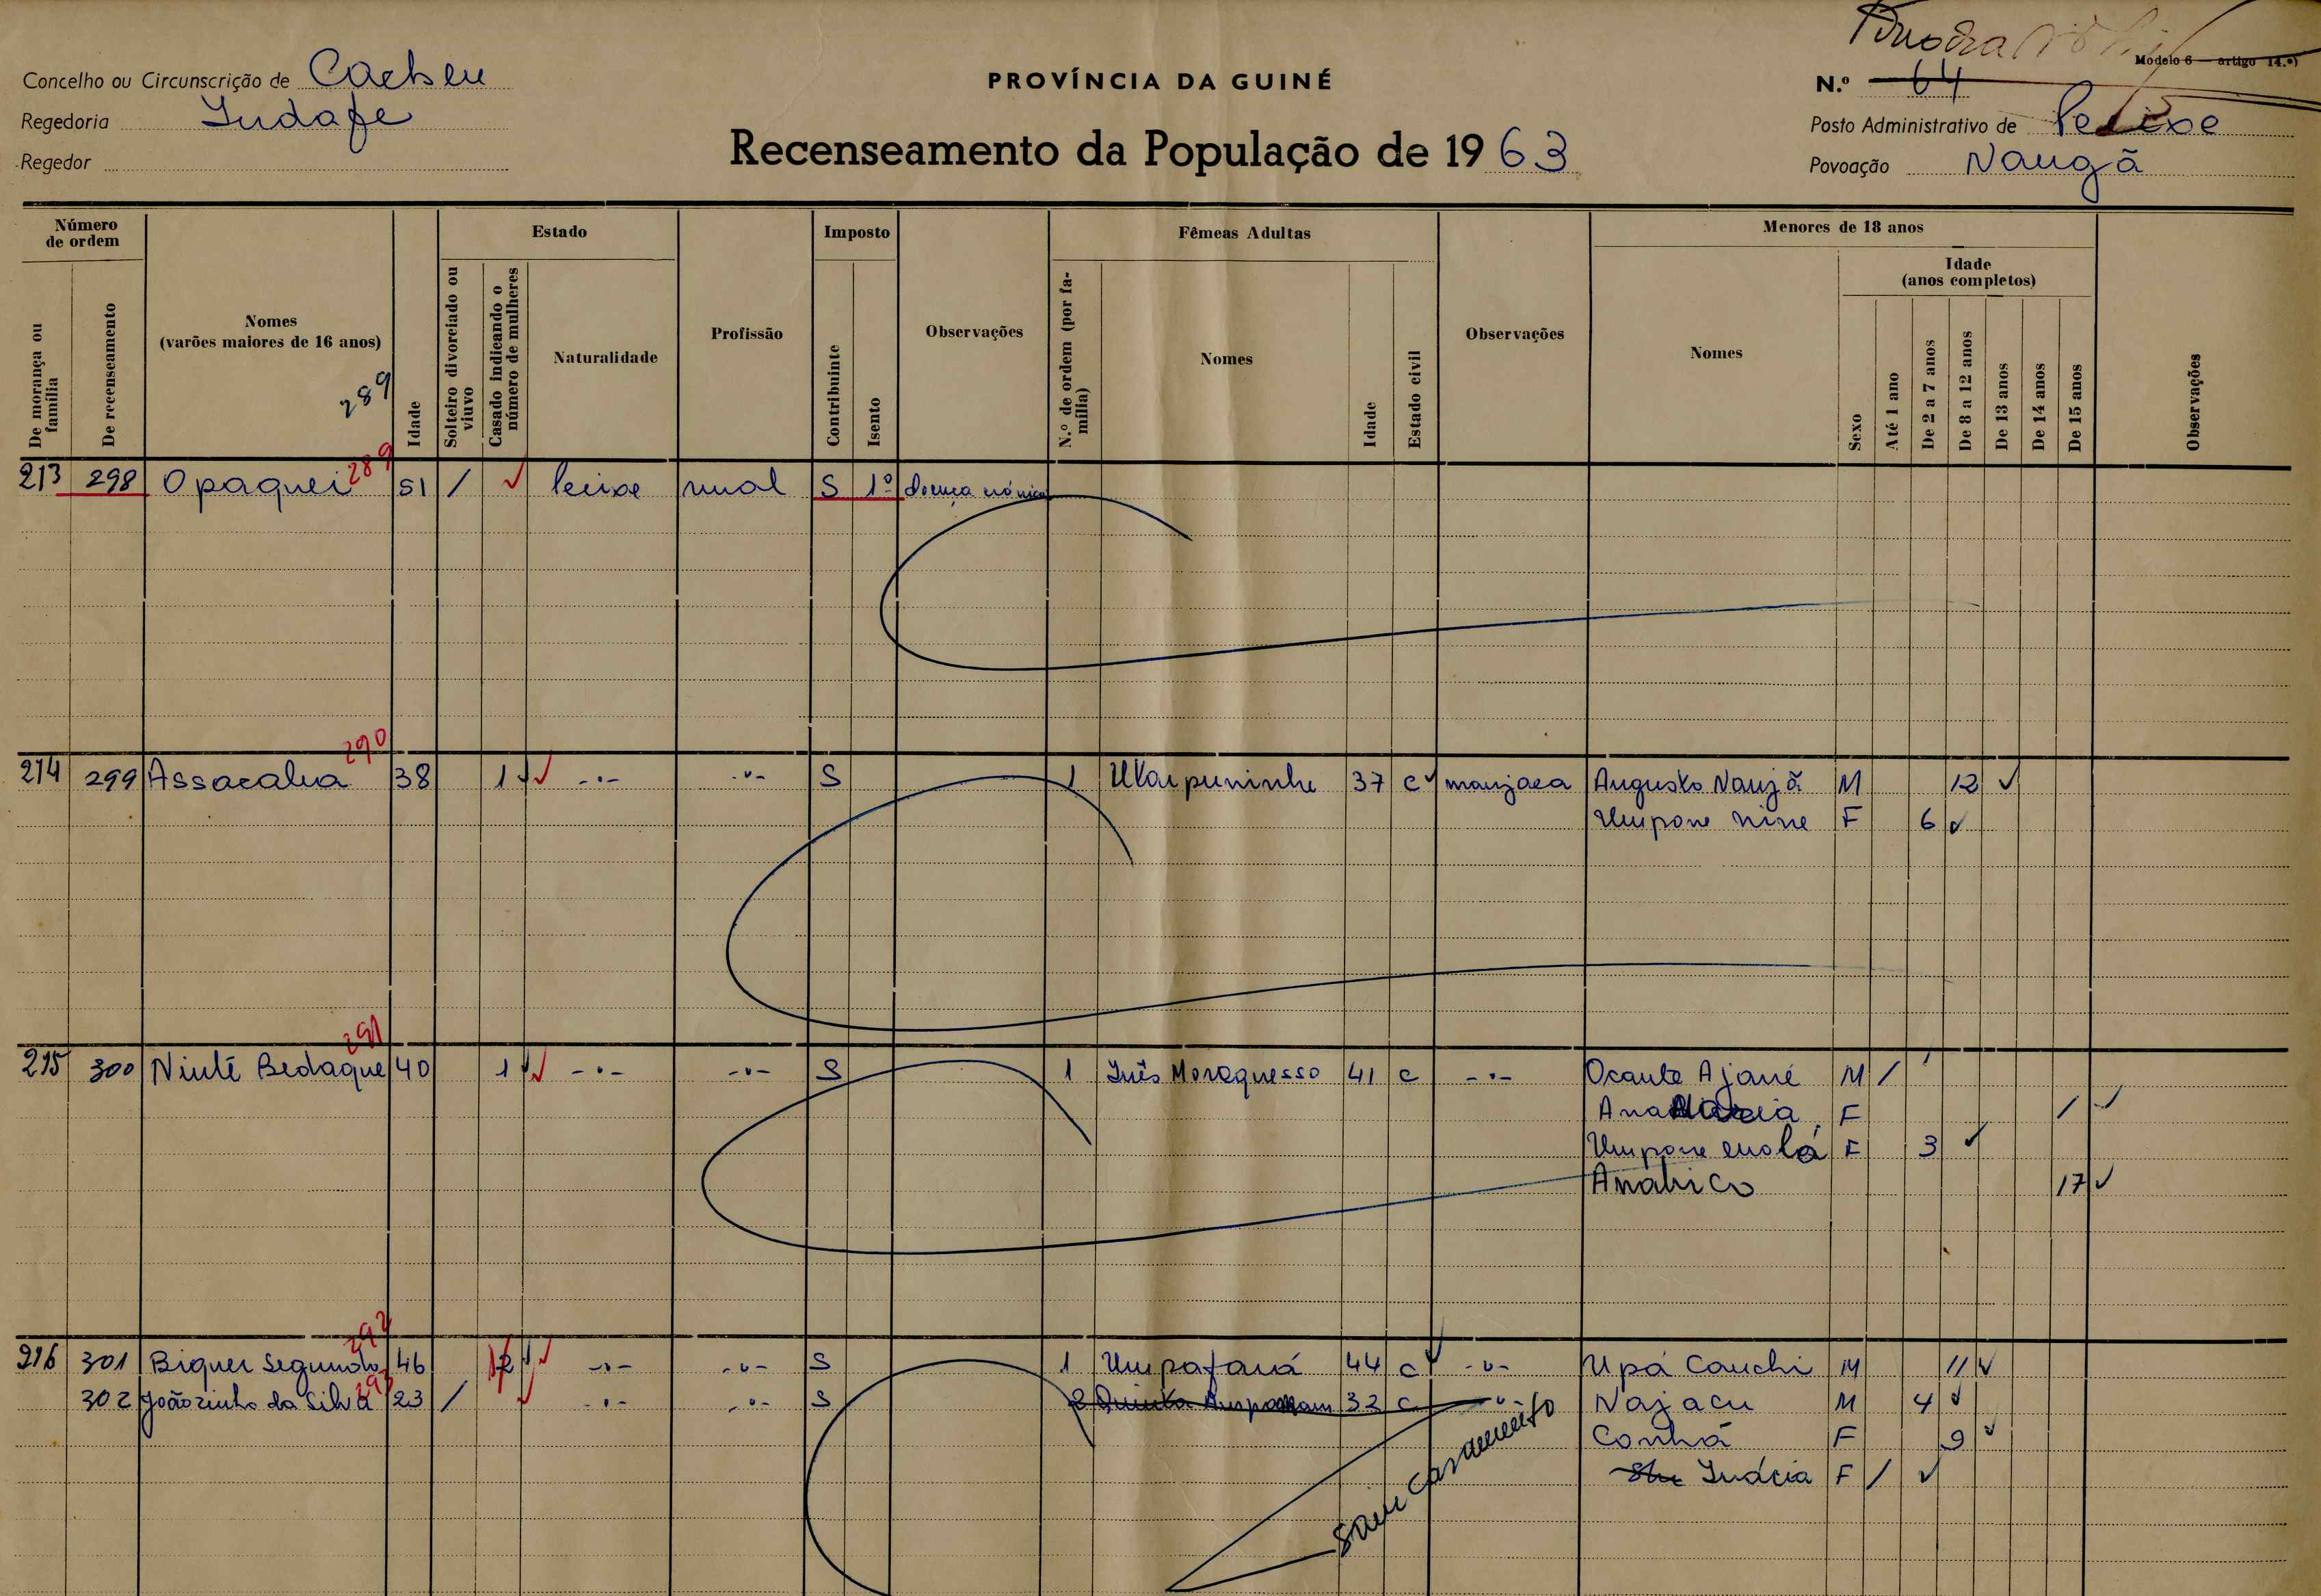 Concelho ou Circunscrição de Cacheu
Regedoria Indafe
Regedor
PROVÍNCIA DA GUINÉ
Recenseamento da População de 1963
Modelo 6 — artigo 14.º)
N.º 64
Posto Administrativo de Pecixe
Povoação Naugã
Número de ordem
De morança ou família
De recenseamento
Nomes
(varões maiores de 16 anos)
289
Idade
Estado
Solteiro divorciado ou viuvo
Casado indicando o número de mulheres
Naturalidade
Profissão
Imposto
Contribuinte
Isento
Observações
Fêmeas Adultas
N.º de ordem (por família)
Nomes
Idade
Estado civil
Observações
Menores de 18 anos
Nomes
Sexo
Idade
(anos completos)
Até 1 ano
De 2 a 7 anos
De 8 a 12 anos
De 13 anos
De 14 anos
De 15 anos
Observações
289
213 298 Opaquei 51 / ✓ Pecixe rural S 1º doença crónica
290
214 299 Assacalua 38 1 ✓ -"- -"- S 1 37 c manjaca Augusto Naujã M 12 ✓
Umpone nine F 6 ✓
291
215 300 Ninté Bedaque 40 1 ✓ -"- -"- S 1 Inês Moraquesso 41 c -"- Ocante Ajané M /
Ana F / ✓
Umpone F 3 ✓
Anabico 17 ✓
292
216 301 Biquer Segundo 46 2 ✓ -"- -"- S 1 Umpafaná 44 c -"- Upá Cauchi M 11 ✓
293
302 Joãozinho da Silva 23 / ✓ -"- -"- S 2 Quinta 32 c -"- Najacu M 4 ✓
Conhã F 9 ✓
Inácia F / ✓
Saiu Casamento